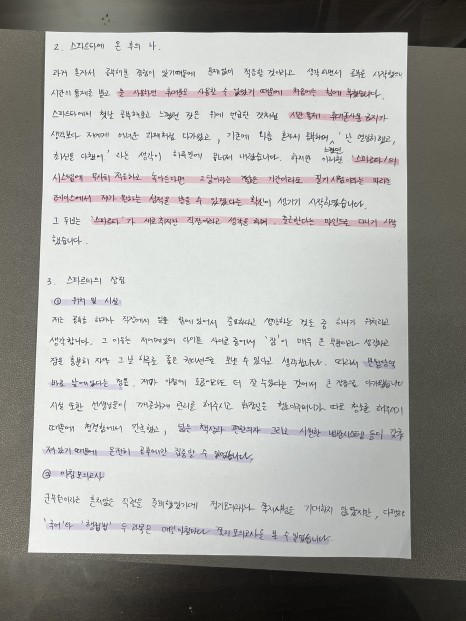 2. 스파르타에 온 후의 나.
과거 혼자서 공부해본 경험이 있기때문에 문제없이 적응할 것이라고 생각하면서 공부를 시작했으나
시간의 통제를 받고 휴대폰도 사용할 수 없었기 때문에 처음에는 힘에 부쳤습니다.
스파르타에서 첫날 공부해보고 느꼈던 것은 위에 언급한 것처럼 시간통제, 휴대폰사용 금지가
생각보다 저에게 어려운 과제처럼 다가왔고, 기존에 혼자서 공부하며, '난 열심히했고,
최선을 다했어' 라는 생각이 하루만에 무너져 내렸습니다. 하지만 이러한 '스파르타'의
시스템에 무사히 적응하고 녹아든다면 2달이라는 짧은 기간이라도 필기시험이라는 마라톤
레이스에서 제가 원하는 성적을 받을 수 있겠다는 확신이 생기기 시작하였습니다.
그 후부는 '스파르타'가 새로 취직한 직장이라고 생각을 하며, 출근한다는 마인드로 다니기 시작
했습니다.
3. 스파르타의 장점
① 위치 및 시설
저는 공부를 하거나 직장에서 일을 함에 있어서 중요하다고 생각하는 것들 중 하나가 위치라고
생각합니다. 그 이유는 제어아래의 다이튼 사이클 중에서 '잠'이 매우 큰 부분이라고 생각하고
잠을 충분히 자야 그 날 하루를 좋은 컨디션으로 보낼 수 있다고 생각합니다. 따라서
바로 앞에있다는 점은, 저가 아침에 조금이라도 더 잘 수있다는 것에서 큰 장점을 가져왔습니다
시설 또한 선생님들이 깨끗하게 관리를 해주시고 화장실은 청소아주머니가 따로 청소를 해주시기
때문에 청결함에서 만족했고, 넓은 책상과 편한의자 그리고 시원한 냉방시스템 등이 갖춰
져있기 때문에 온전히 공부에만 집중할 수 있었습니다.
② 아침모의고사
군무원이라는 흔치않은 직렬을 준비했었기에 정기모의고사나 쪽지시험은 기대하지 않았지만,
'국어'와 '행정법' 두 과목은 매일아침마다 쪽지모의고사를 볼 수 있었습니다.